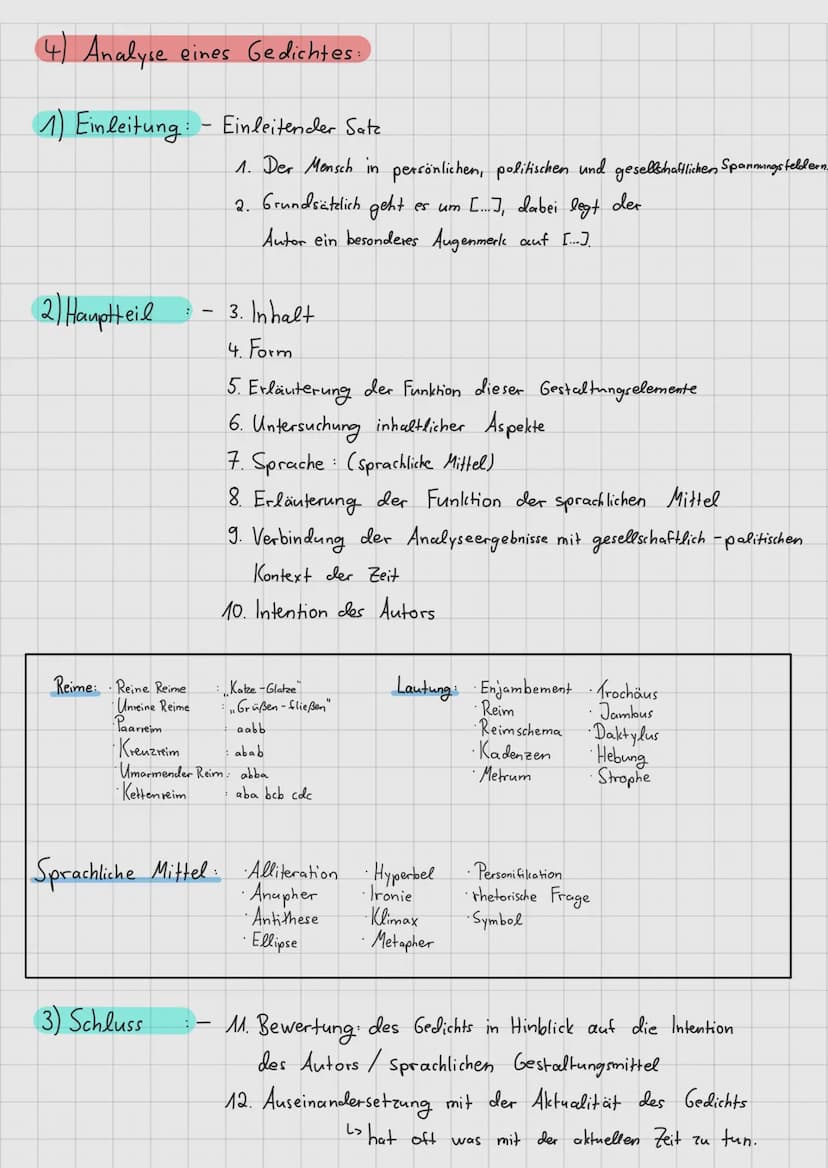 4) Analyse eines Gedichtes:
1) Einleitung: - Einleitender Satz
1. Der Mensch in persönlichen, politischen und gesellschaftlichen Spannungsfeldern.
2. Grundsätzlich geht es um [...], dabei legt der
Autor ein besonderes Augenmerk auf [...].
2) Hauptteil : - 3. Inhalt
4. Form
5. Erläuterung der Funktion dieser Gestaltungselemente
6. Untersuchung inhaltlicher Aspekte
7. Sprache : (sprachliche Mittel)
8. Erläuterung der Funktion der sprachlichen Mittel
9. Verbindung der Analyseergebnisse mit gesellschaftlich - politischen
Kontext der Zeit
10. Intention des Autors
Reime: · Reine Reime : „Katze - Glatze"
· Unreine Reime : „Grüßen - fließen"
· Paarreim : aabb
· Kreuzreim : abab
· Umarmender Reim : abba
· Kettenreim : aba bcb cdc
Lautung: · Enjambement · Trochäus
· Reim · Jambus
· Reimschema · Daktylus
· Kadenzen · Hebung
· Metrum · Strophe
Sprachliche Mittel: · Alliteration · Hyperbel · Personifikation
· Anapher · Ironie · rhetorische Frage
· Antithese · Klimax · Symbol
· Ellipse · Metapher
3) Schluss : - 11. Bewertung: des Gedichts in Hinblick auf die Intention
des Autors / sprachlichen Gestaltungsmittel
12. Auseinandersetzung mit der Aktualität des Gedichts
↳ hat oft was mit der aktuellen Zeit zu tun.